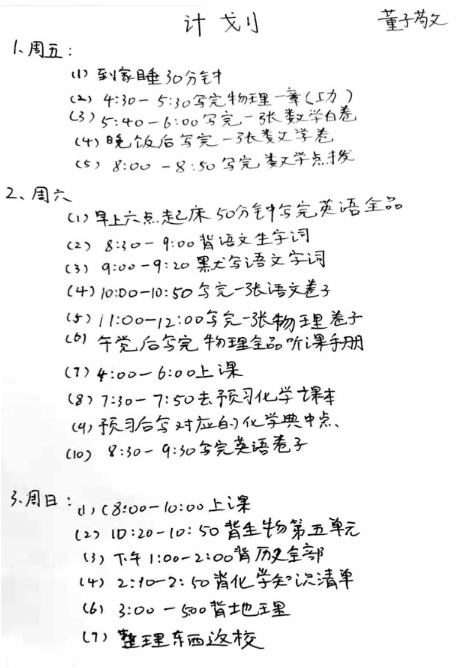 计划
董子敬文
1、周五：
(1) 到家睡30分钟
(2) 4:30-5:30写完物理一章(功)
(3) 5:40-6:00写完一张数学白卷
(4) 晚饭后写完一张数学卷
(5) 8:00-8:50写完数学点拨
2、周六
(1) 早上六点起床50分钟写完英语全品
(2) 8:30-9:00背语文生字词
(3) 9:00-9:20默写语文字词
(4) 10:00-10:50写完一张语文卷子
(5) 11:00-12:00写完一张物理卷子
(6) 午觉后写完物理全品听课手册
(7) 4:00-6:00上课
(8) 7:30-7:50去预习化学课本
(9) 预习后写对应的化学典中点、
(10) 8:30-9:30写完英语卷子
3、周日：(1) (8:00-10:00上课
(2) 10:20-10:50背生物第五单元
(3) 下午1:00-2:00背历史全部
(4) 2:10-2:50背化学知识清单
(6) 3:00-500背地理
(7) 整理东西返校